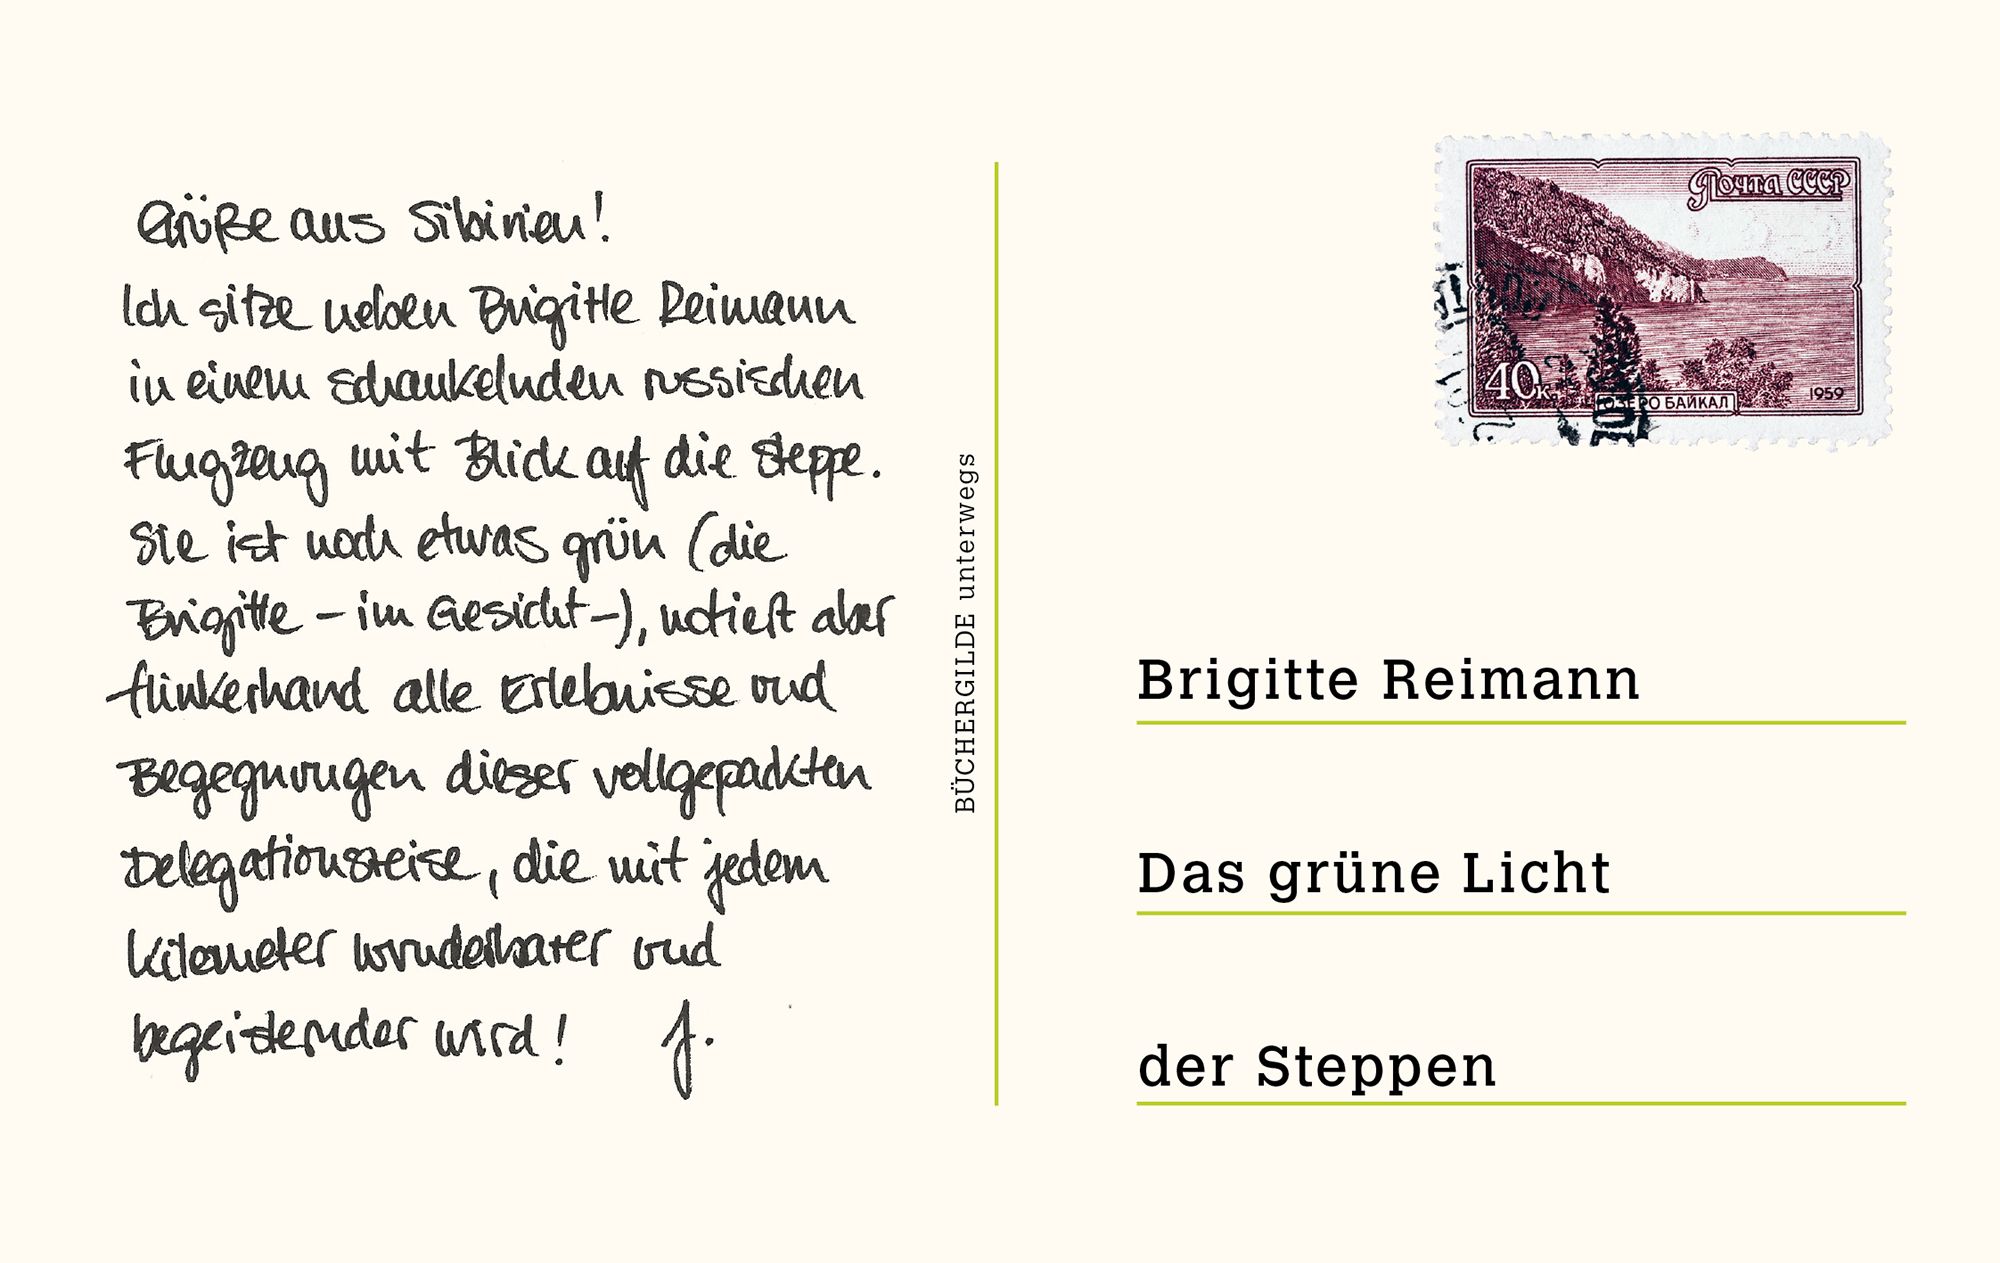 Grüße aus Sibirien!
Ich sitze neben Brigitte Reimann
in einem schaukelnden russischen
Flugzeug mit Blick auf die Steppe.
Sie ist noch etwas grün (die
Brigitte – im Gesicht –), notiert aber
flinkerhand alle Erlebnisse und
Begegnungen dieser vollgepackten
Delegationsreise, die mit jedem
Kilometer wunderbarer und
begeisternder wird! J.
BÜCHERGILDE unterwegs
Почта СССР
40к.
ОЗЕРО БАЙКАЛ
1959
Brigitte Reimann
Das grüne Licht
der Steppen